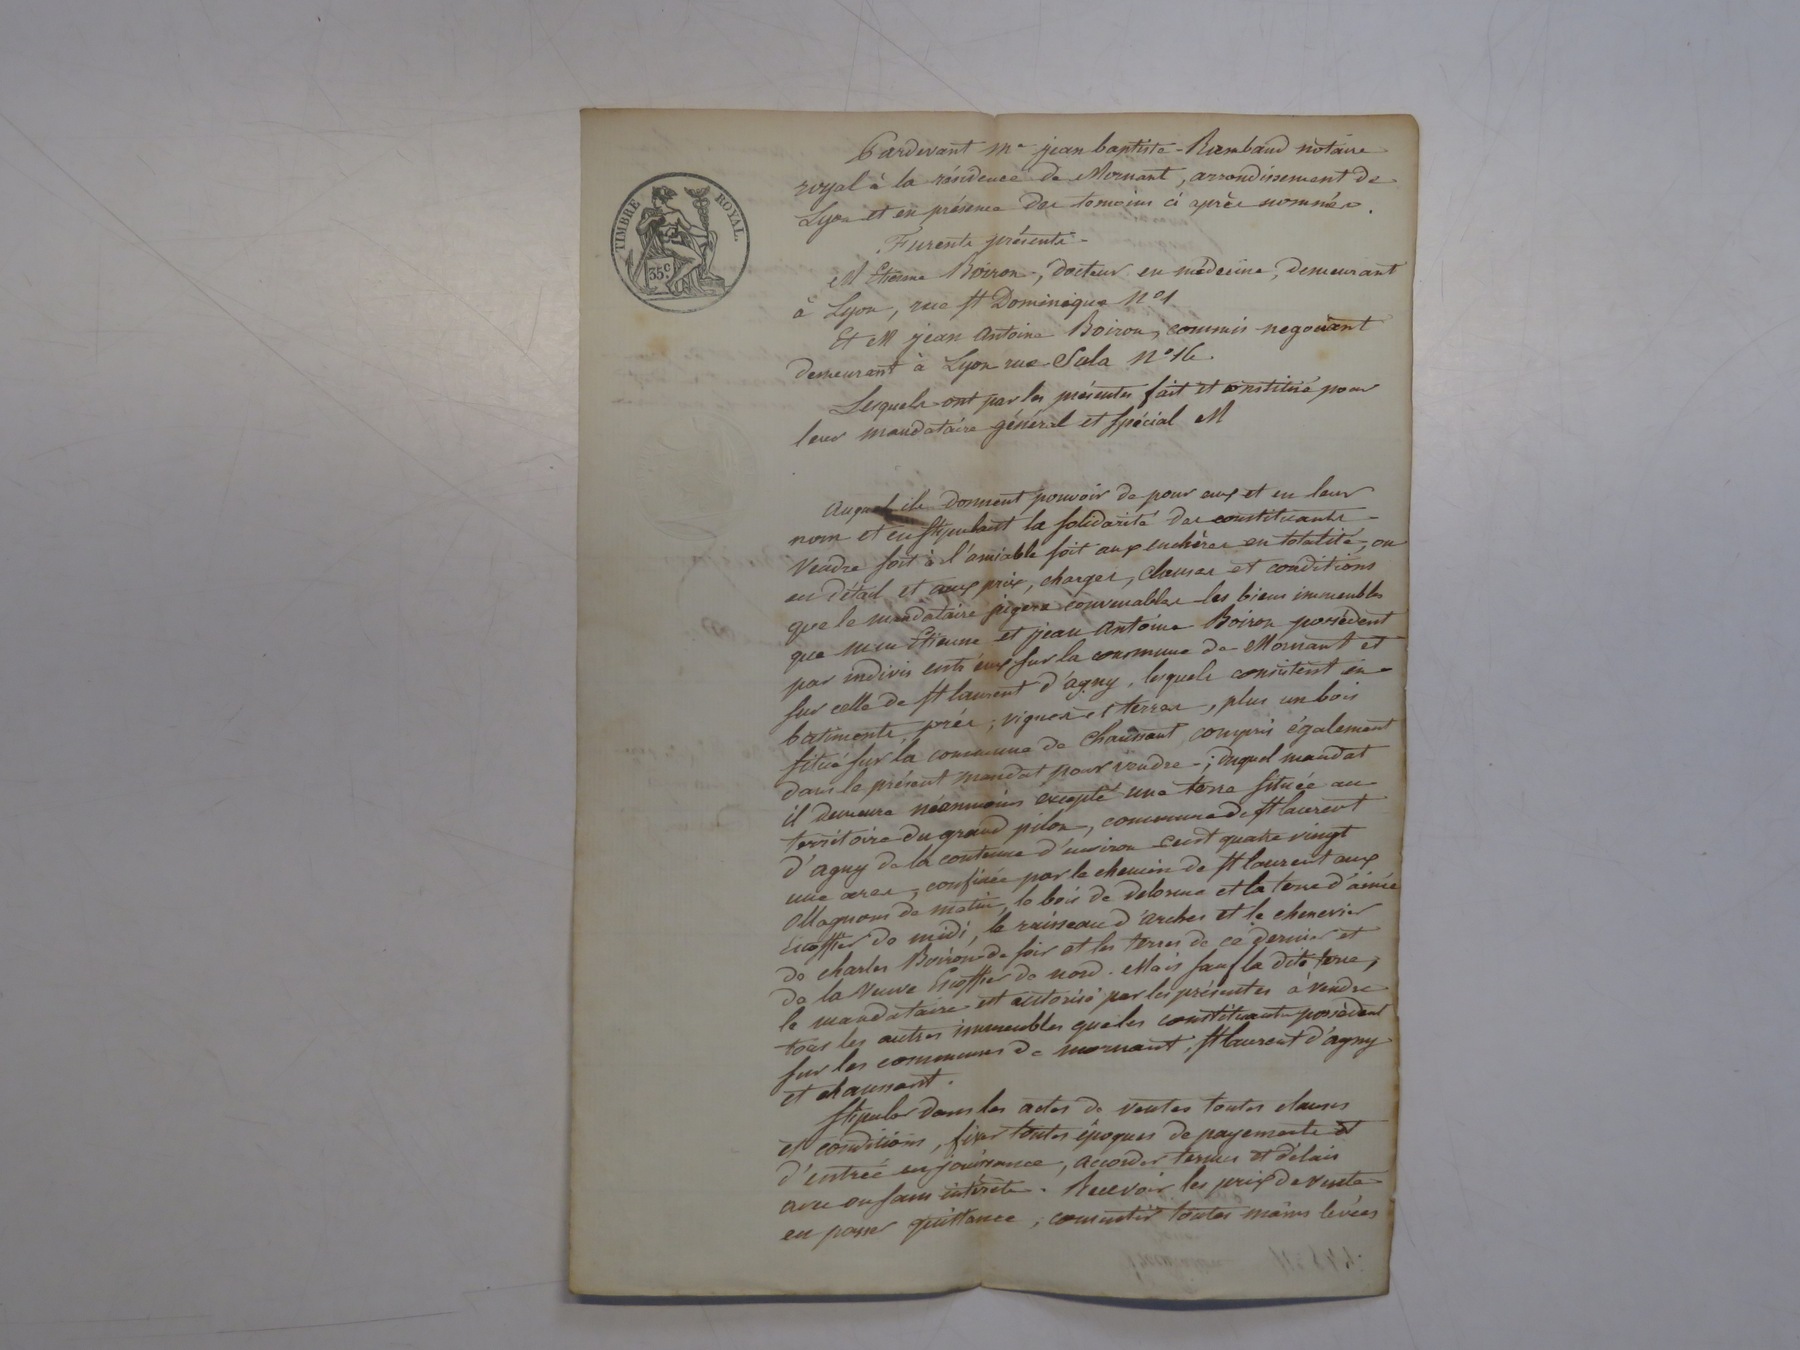 TIMBRE ROYAL.
35c
Pardevant Me jean baptiste Rambaud notaire
royal à la résidence de Mornant, arrondissement de
Lyon et en présence des temoins ci après nommés.
Furents présents
M Etienne Boiron, docteur en médecine, demeurant
à Lyon, rue St Dominique No 1
Et M jean Antoine Boiron, commis negociant
demeurant à Lyon rue Sala No 16.
Lesquels ont par les présentes fait et constitué pour
leur mandataire général et spécial M
Auquel ils donnent pouvoir de pour eux et en leur
nom et en stipulant la solidarité des constituants
Vendre soit à l'amiable soit aux enchères en totalité, ou
en détail et aux prix, charges, clauses et conditions
que le mandataire jugera convenables les biens immeubles
que Mrs Etienne et jean Antoine Boiron possèdent
par indivis entr'eux sur la commune de Mornant et
sur celle de St laurent d'agny, lesquels consistent en
batiments, prés, vignes et terres, plus un bois
situé sur la commune de Chaussant compris également
dans le présent mandat pour vendre; duquel mandat
il demeure néanmoins excepté une terre située au
territoire du grand pilon, commune de St laurent
d'agny de la contenue d'environ cent quatre vingt
une ares, confinée par le chemin de St laurent aux
Magnons de matin, le bois de delorme et la terre d'aimé
Escoffier de midi, le ruisseau d'arches et le chenevier
de charles Boiron de soir et les terres de ce dernier et
de la Veuve Escoffier de nord. Mais sauf la dite terre,
le mandataire est autorisé par les présentes à vendre
tous les autres immeubles que les constituants possèdent
sur les communes de mornant, St laurent d'agny
et chaussant.
Stipuler dans les actes de ventes toutes clauses
et conditions, fixer toutes époques de payements et
d'entrée en jouissance, accorder termes et délais
avec ou sans intérêts. Recevoir les prix de vente
en passer quittance, consentir toutes mains levées